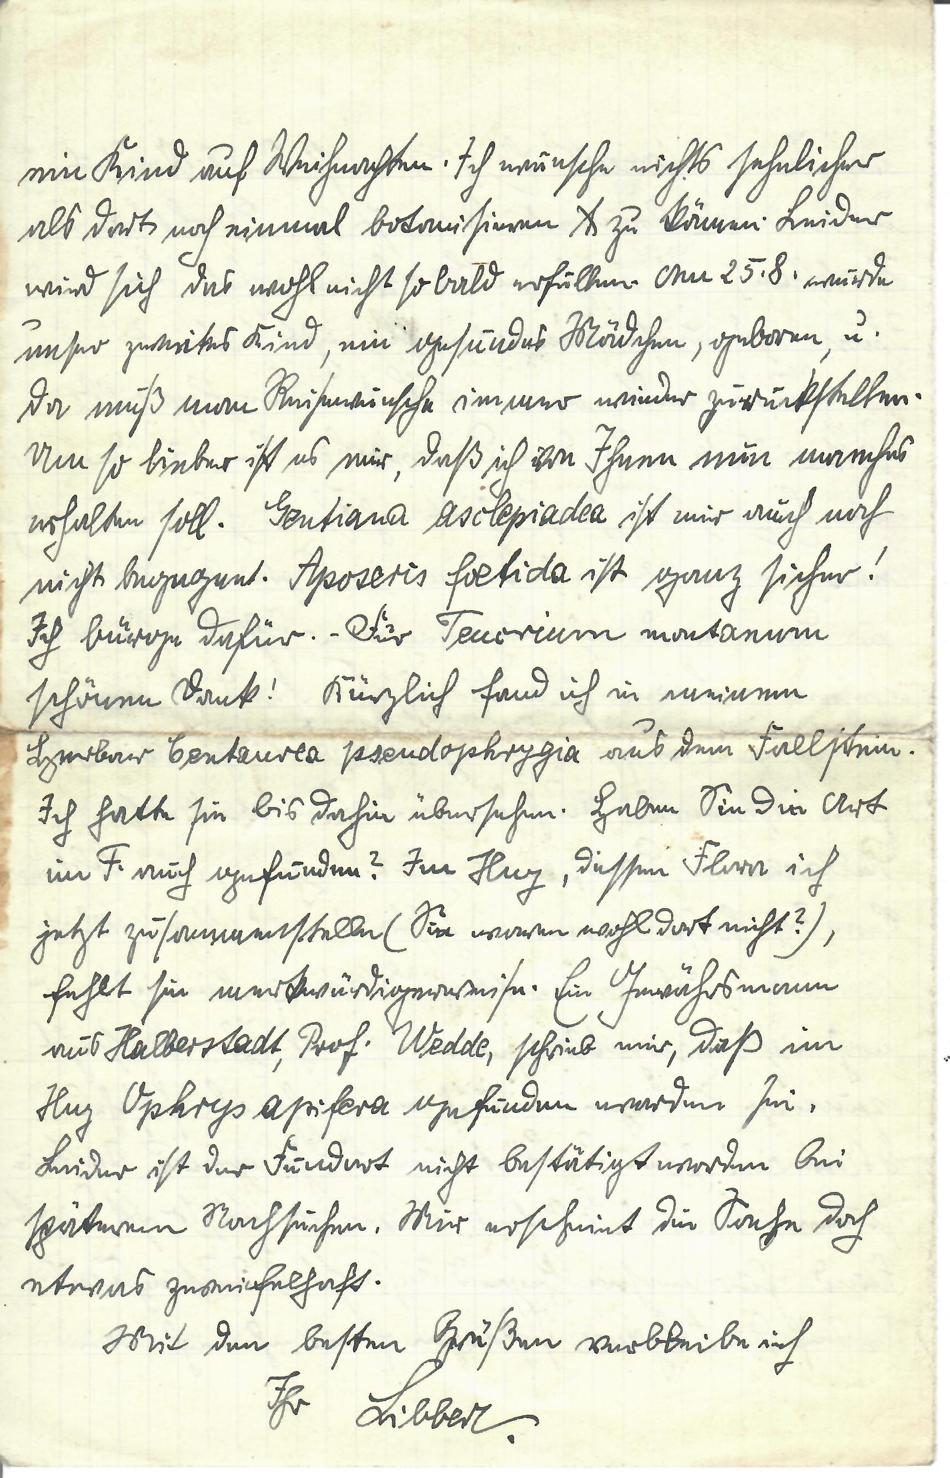 ein Kind auf Weihnachten. Ich wünsche nichts sehnlicher
als dort noch einmal botanisieren zu können. Leider
wird sich das wohl nicht so bald erfüllen. Am 25.8. wurde
unser zweites Kind, ein gesundes Mädchen, geboren, u.
da muß man Reisewünsche immer wieder zurückstellen.
Um so lieber ist es mir, daß ich von Ihnen nun manches
erhalten soll. Gentiana asclepiadea ist mir auch noch
nicht begegnet. Aposeris foetida ist ganz sicher!
Ich bürge dafür. - Für Teucrium montanum
schönen Dank! Kürzlich fand ich in meinem
Herbar Centaurea pseudophrygia aus dem Fallstein.
Ich hatte sie bis dahin übersehen. Haben Sie die Art
im F. auch gefunden? Im Huy, dessen Flora ich
jetzt zusammenstelle (Sie waren wohl dort nicht?),
fehlt sie merkwürdigerweise. Ein Gewährsmann
aus Halberstadt, Prof. Wedde, schrieb mir, daß im
Huy Ophrys apifera gefunden worden sei.
Leider ist der Fundort nicht bestätigt worden bei
späterem Nachsuchen. Mir erscheint die Sache doch
etwas zweifelhaft.
Mit den besten Grüßen verbleibe ich
Ihr Libbert.